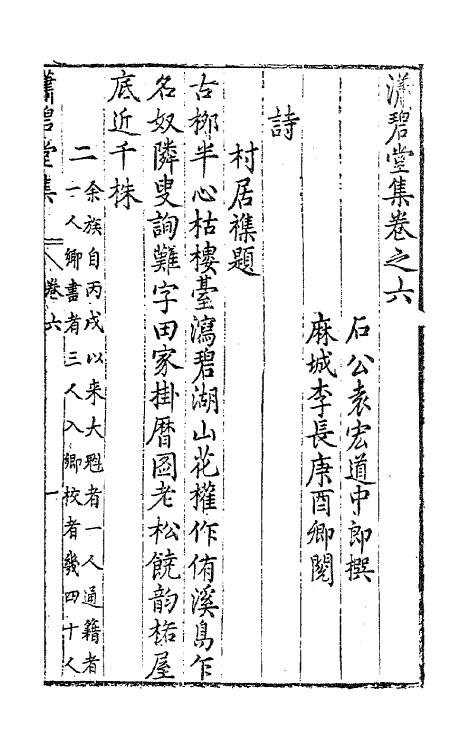 瀟碧堂集卷之六
石公袁宏道中郎撰
麻城李長庚酉卿閱
詩
村居襍題
古桞半心枯樓臺瀉碧湖山花權作侑溪鳥乍
名奴隣叟詢難字田家掛曆圖老松饒韵格屋
底近千株
二
余族自丙戌以来大魁者一人通籍者
一人卿書者三人入卿校者幾四十人
瀟碧堂集
卷六
一